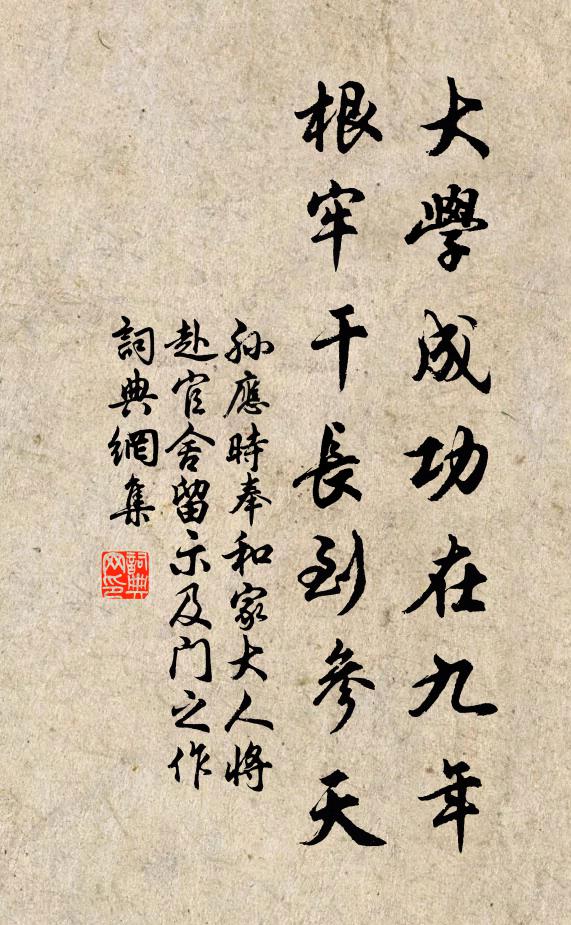 大學成功在九年
根牢干長到參天
孫應時奉和家大人將
赴官舍留示及门之作
詞典網集
詞典
网印